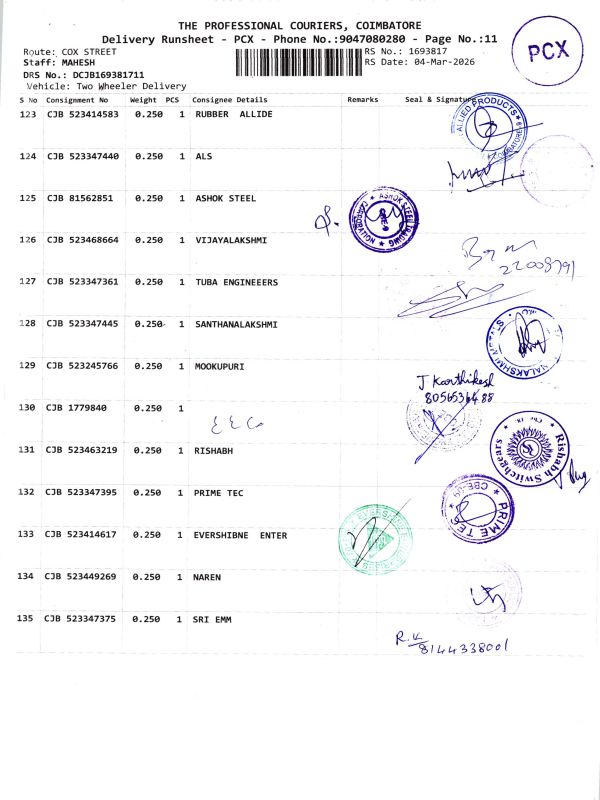 THE PROFESSIONAL COURIERS, COIMBATORE
Delivery Runsheet - PCX - Phone No.:9047080280 - Page No.:11
PCX
Route: COX STREET
RS No.: 1693817
Staff: MAHESH
RS Date: 04-Mar-2026
DRS No.: DCJB169381711
Vehicle: Two Wheeler Delivery
S No Consignment No Weight PCS Consignee Details Remarks Seal & Signature
123 CJB 523414583 0.250 1 RUBBER ALLIDE
ALLIED PRODUCTS
124 CJB 523347440 0.250 1 ALS
125 CJB 81562851 0.250 1 ASHOK STEEL
126 CJB 523468664 0.250 1 VIJAYALAKSHMI
127 CJB 523347361 0.250 1 TUBA ENGINEEERS
128 CJB 523347445 0.250 1 SANTHANALAKSHMI
129 CJB 523245766 0.250 1 MOOKUPURI
J Karthikesh
8056536488
130 CJB 1779840 0.250 1
131 CJB 523463219 0.250 1 RISHABH
Rishabh Switchgears
132 CJB 523347395 0.250 1 PRIME TEC
PRIME TE
CBE-09
133 CJB 523414617 0.250 1 EVERSHIBNE ENTER
134 CJB 523449269 0.250 1 NAREN
135 CJB 523347375 0.250 1 SRI EMM
R.K
8144338001